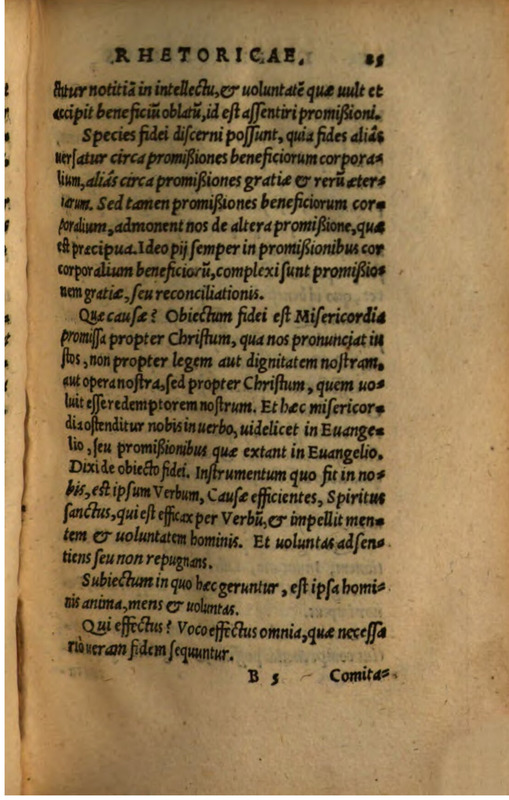 RHETORICAE. 25
ctitur notitiã in intellectu, & uoluntatẽ quæ uult et
accipit beneficiũ oblatũ, id est assentiri promißioni.
Species fidei discerni possunt, quia fides aliás
uersatur circa promißiones beneficiorum corpora-
lium, aliás circa promißiones gratiæ & rerũ æter-
narum. Sed tamen promißiones beneficiorum cor-
poralium, admonent nos de altera promißione, quæ
est præcipua. Ideo pij semper in promißionibus cor
corporalium beneficiorũ, complexi sunt promißio-
nem gratiæ, seu reconciliationis.
Quæ causæ? Obiectum fidei est Misericordia
promissa propter Christum, qua nos pronunciat iu
stos, non propter legem aut dignitatem nostram,
aut opera nostra, sed propter Christum, quem uo-
luit esse redemptorem nostrum. Et hæc misericor-
dia ostenditur nobis in uerbo, uidelicet in Euange-
lio, seu promißionibus quæ extant in Euangelio.
Dixi de obiecto fidei. Instrumentum quo fit in no-
bis, est ipsum Verbum, Causæ efficientes, Spiritus
sanctus, qui est efficax per Verbũ, & impellit men-
tem & uoluntatem hominis. Et uoluntas adsen-
tiens seu non repugnans.
Subiectum in quo hæc geruntur, est ipsa homi-
nis anima, mens & uoluntas.
Qui effectus? Voco effectus omnia, quæ necessa
riò ueram fidem sequuntur.
B 5 Comita-